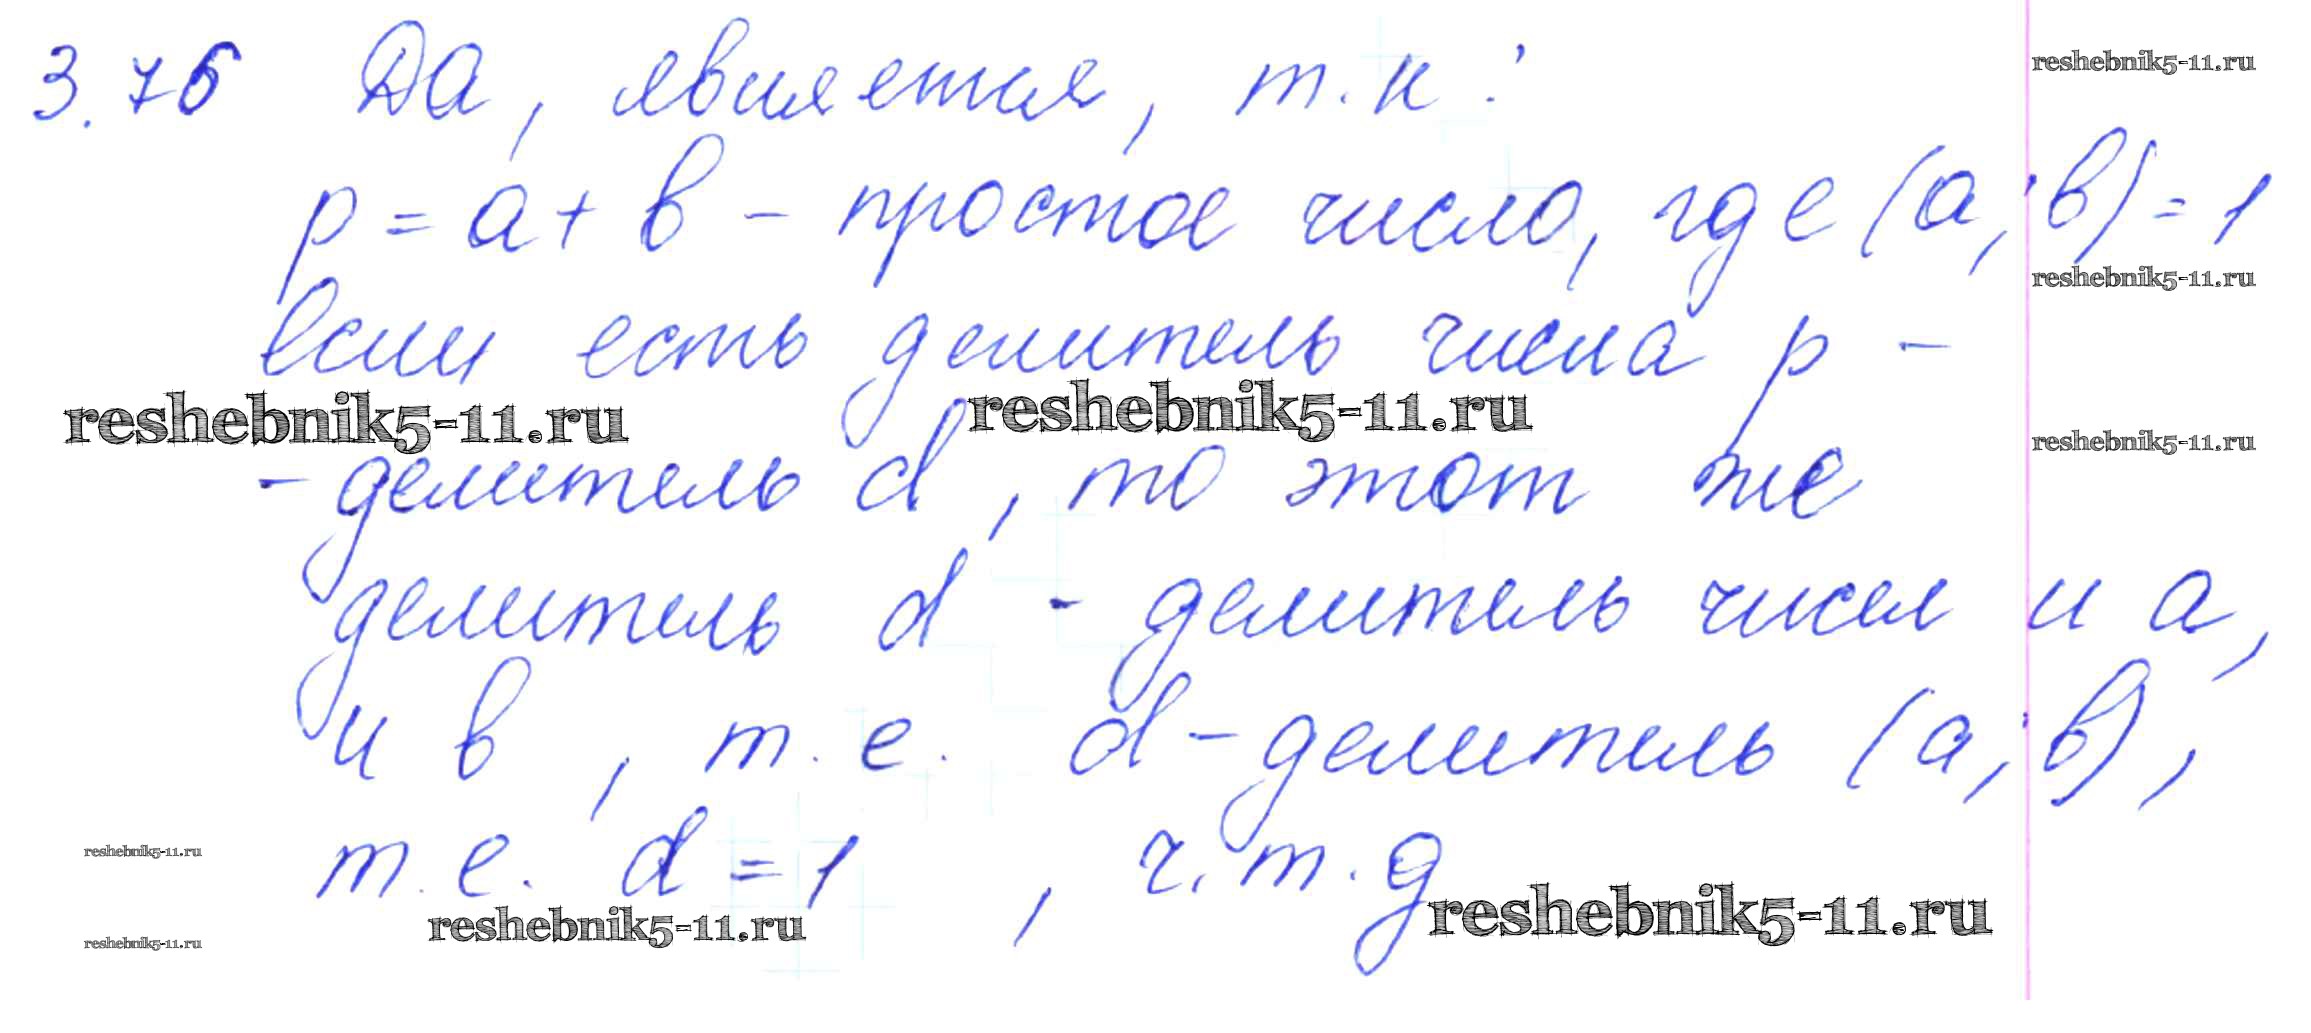 3.76 Да, является, т.к:
reshebnik5-11.ru
p = a + b - простое число, где (a; b) = 1
reshebnik5-11.ru
Если есть делитель числа p -
reshebnik5-11.ru reshebnik5-11.ru
reshebnik5-11.ru
- делитель d, то этот же
делитель d - делитель чисел и a,
и b, т.е. d - делитель (a; b),
т.е. d = 1, ч.т.д
reshebnik5-11.ru
reshebnik5-11.ru reshebnik5-11.ru
reshebnik5-11.ru